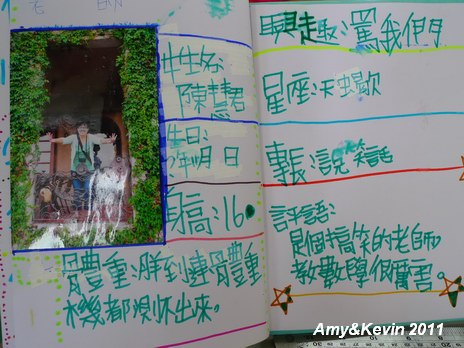 老師
姓名:
陳慧君
生日:
年 月 日
身高:16
體重:胖到連體重
機都測不出來。
興趣:罵我們
星座:天蠍
專長:說笑話
評語:
是個搞笑的老師。
教數學很厲害。
Amy&Kevin 2011